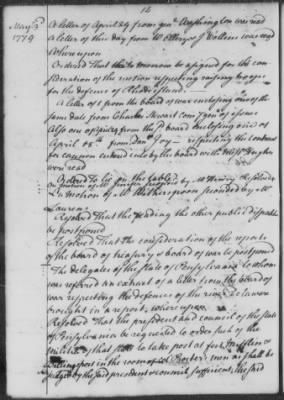 14
May 3d
1779
A letter of April 29 from genl Washington was read
A letter of this day from W Atlee & J Wilkins was read
Whereupon
Ordered That to morrow be assigned for the con
sideration of the motion respecting raising troops
for the defence of Rhode island
A letter of 1 from the board of war enclosing one of the
same date from Charles Stewart com. gen. of issues
Also one of from the sd board enclosing one of
April 15th from respecting the contract
for cannon entered into by the board with Messrs Hughes
were read
Ordered to lie on the table
On motion of Mr seconded by Mr
Laurens
Resolved That the reading the other public dispatches
be postponed
Resolved That the consideration of the reports
of the board of treasury & board of war be postponed
The delegates of the State of Pensylvania to whom
was referred an extract of a letter from the board of
war respecting the defences of the river Delaware
brought in a report, whereupon
Resolved That the president and council of the state
of Pensylvania be requested to order such of the
militia of that state to take post at fort Mifflin &
Billingsport in the room of Col Proctor's men as shall be
judged by the said president & council sufficient, the said